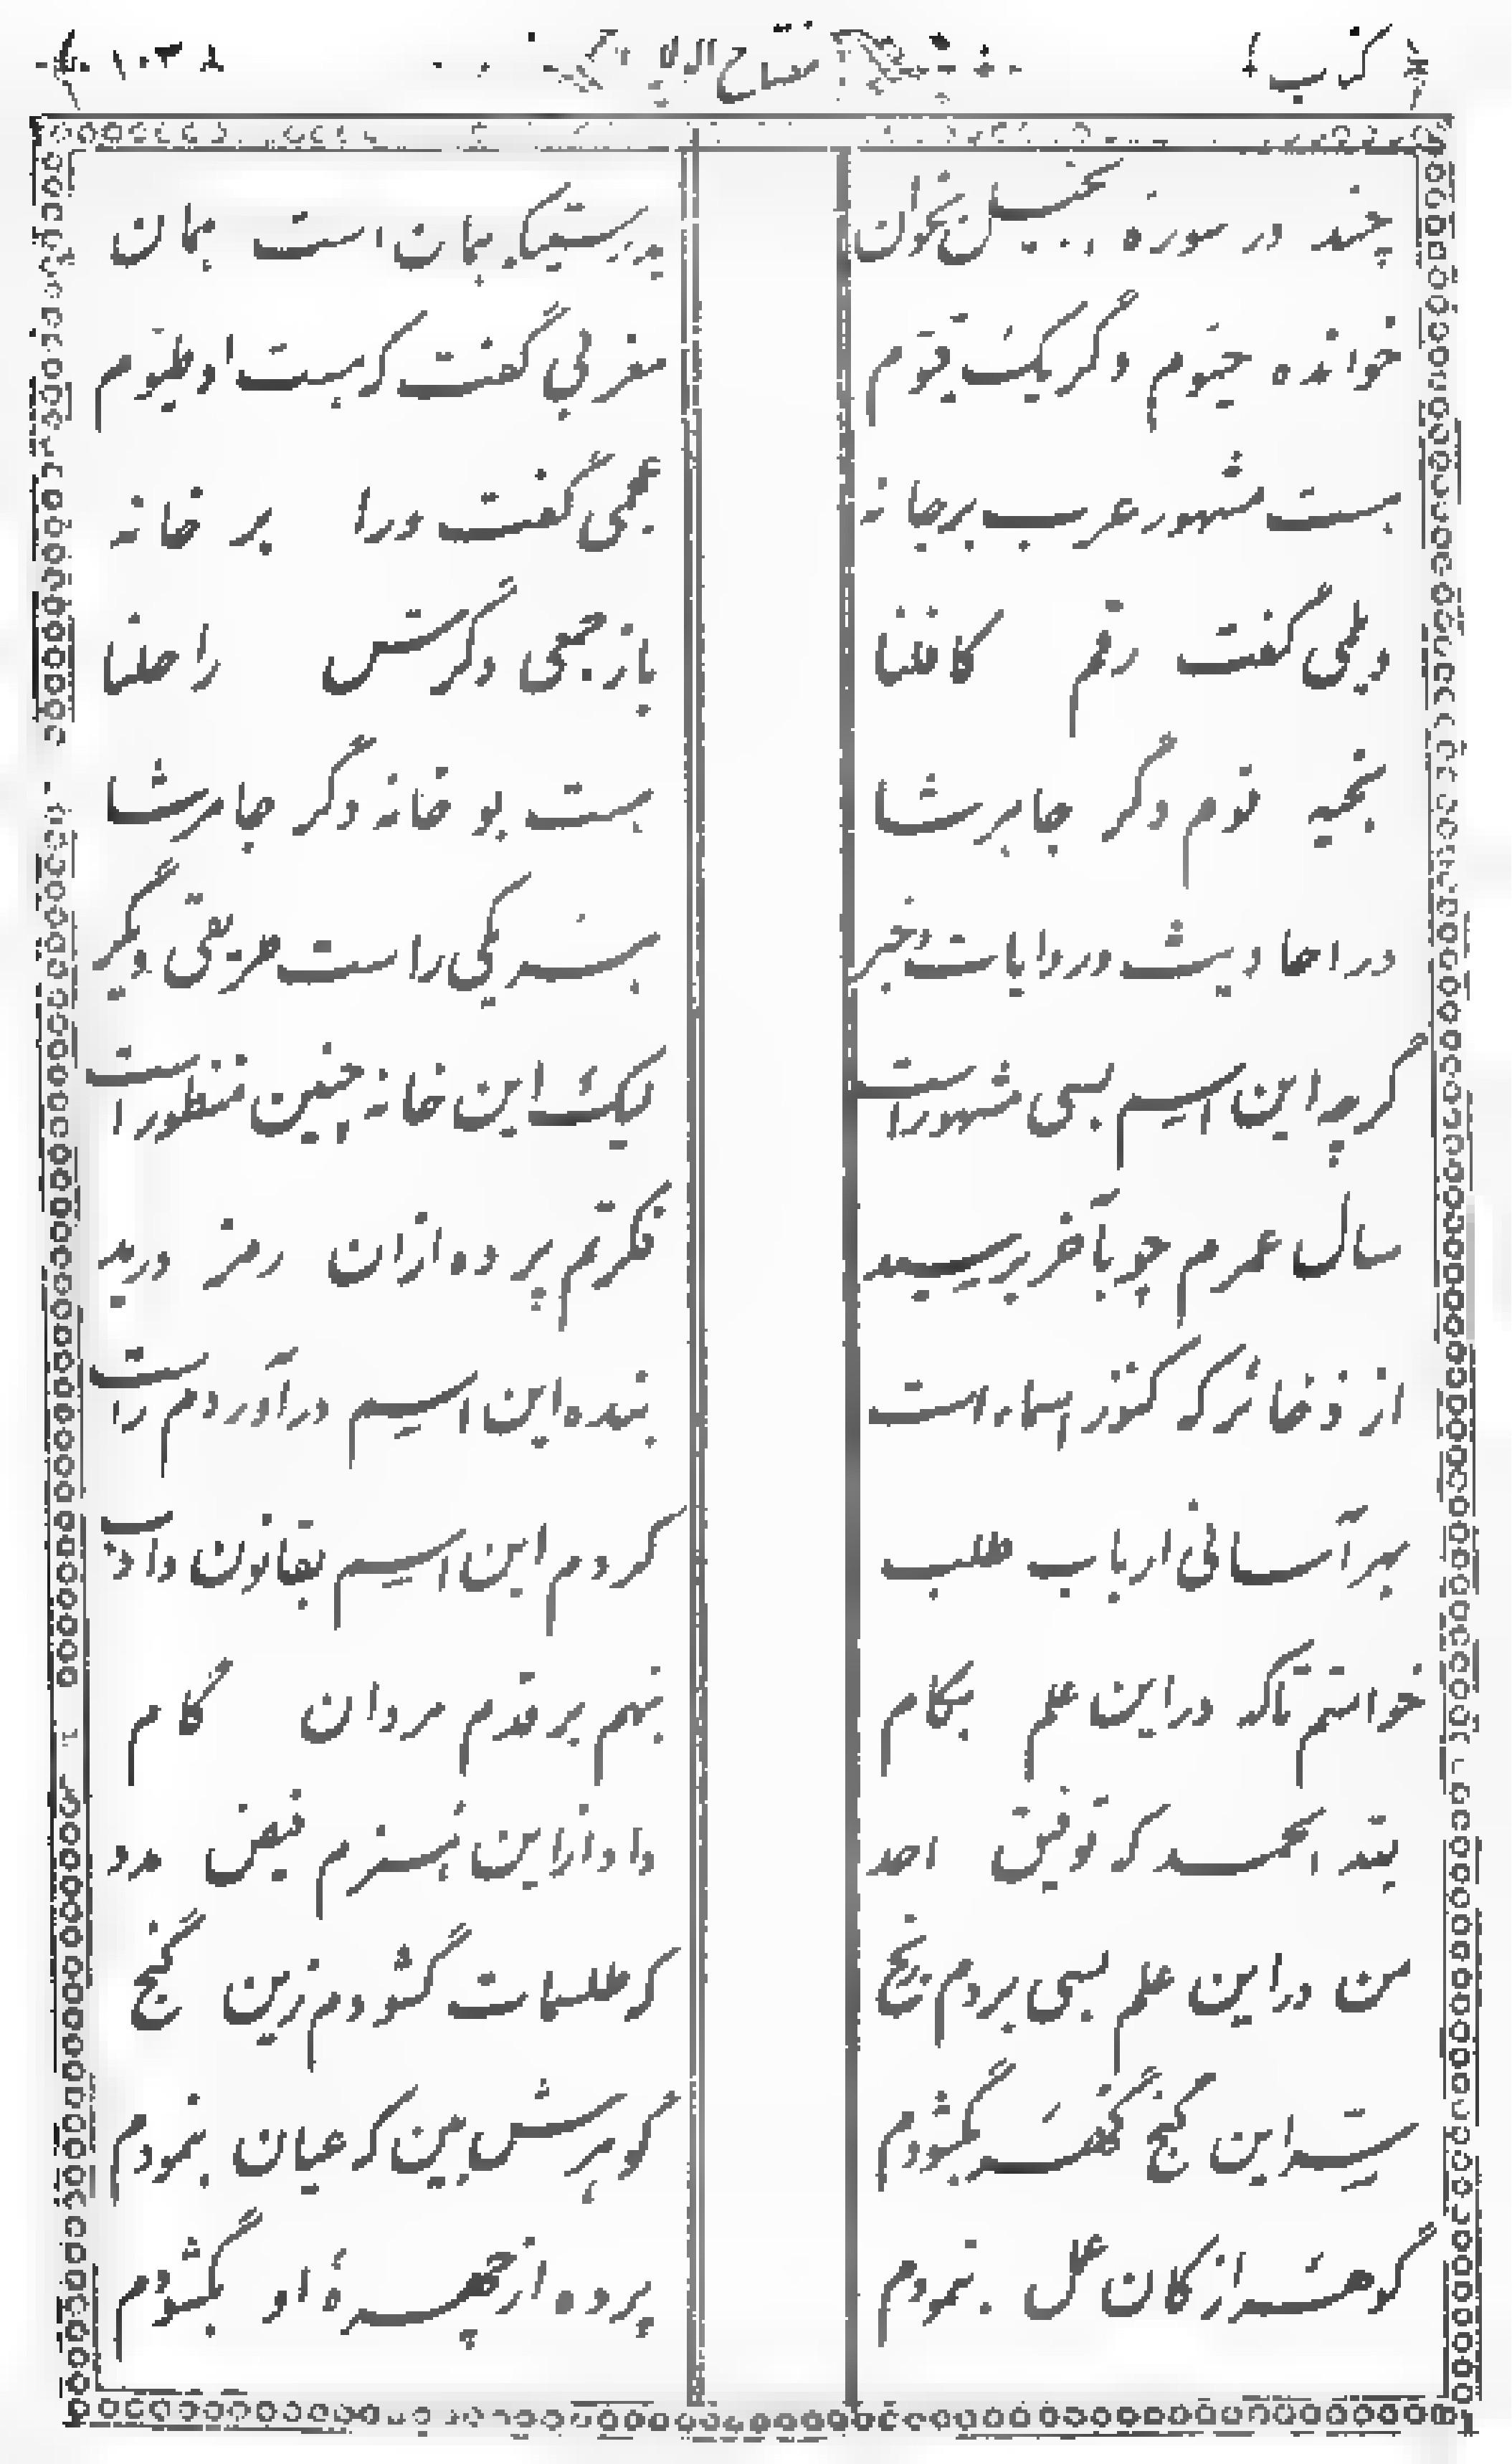 کتاب مفتاح ۱۰۳۸
چند در سوره بخوان بدرستیکه همان است همان
خوانده حیوم وگر یک قیوم مغربی گفت که هست او طیوم
هست مشهور عرب برجانه عجمی گفت ورا بر خانه
ویلمی گفت رقم کافلنا باز جمعی وگرش راحلنا
قوم وگر جابرشا هست بو خانه وگر جامرشا
در احادیث وروایات وخبر هر یکی راست طریقی دگر
گرچه این اسیم بسی مشهور است لیک این خانه چنین منظور است
سال عمرم چو بآخر برسید فکرتم پرده ازان رمز درید
از ذخائر که کنوز اسماء است بنده این اسیم درآوردم راست
بهر آسانی ارباب طلب کردم این اسیم بقانون داب
خواستم تاکه دراین علم بکام بنهم بر قدم مردان گام
لله الحمد که توفیق احد داد ازاین هنرم فیض مدد
من دراین علم بسی بردم رنج که طلسمات گشودم زین گنج
سر این گنج گهر بگشودم گوهرش بین که عیان بنمودم
گوهر از کان عمل بنمودم پرده از چهره او بگشودم